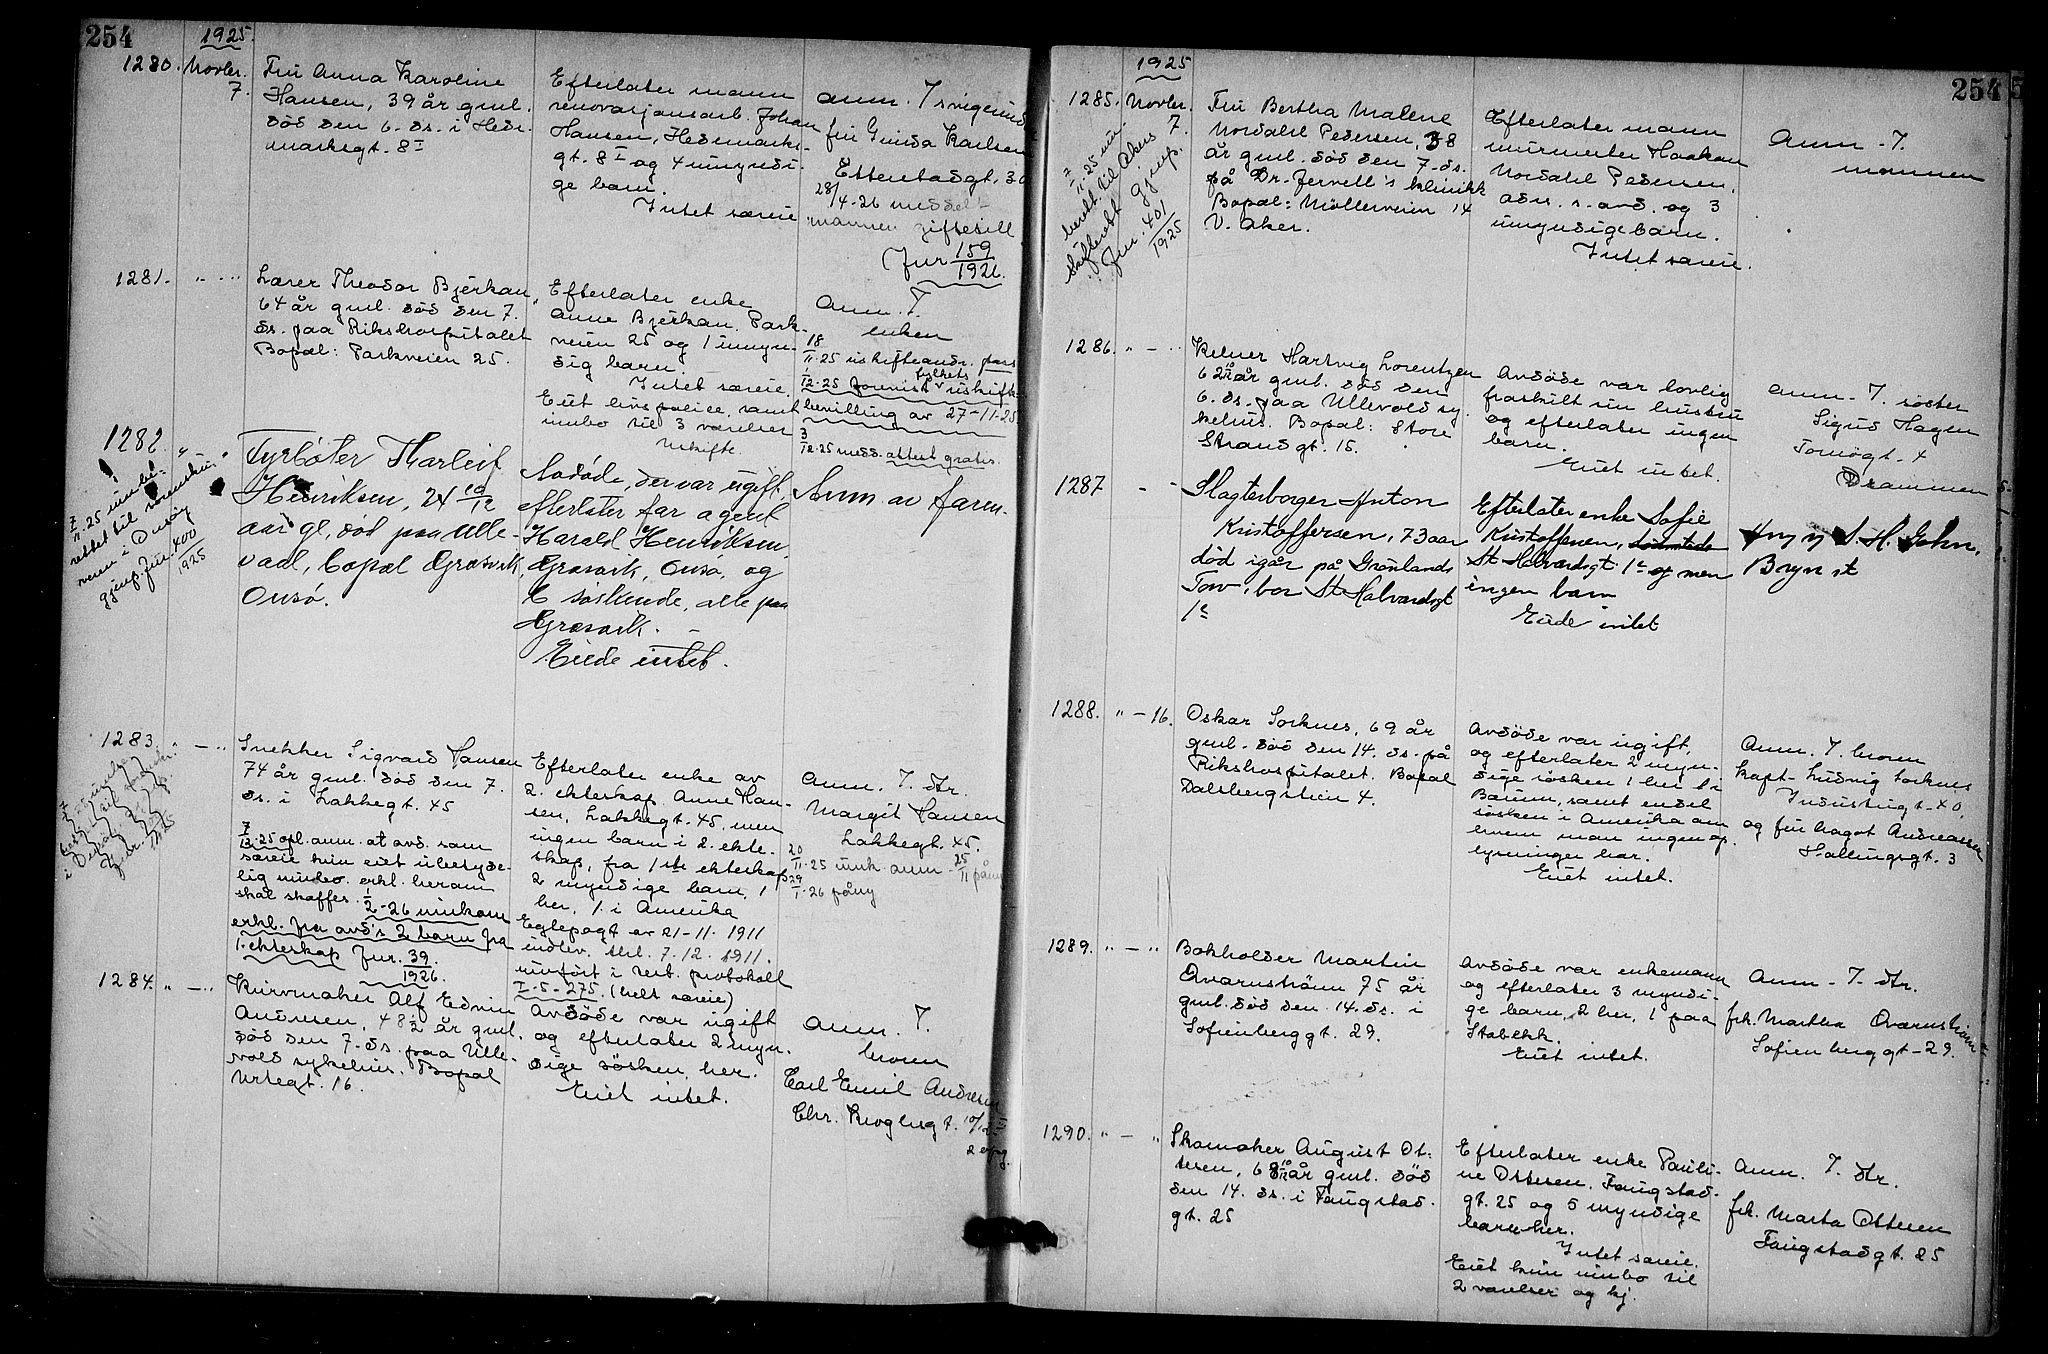 254
1925
1280. Novbr. 7.
Fru Anna Karoline
Hansen, 39 år gml.
död den 6. ds. i Hede-
markegt. 8 I
Efterlater mann
renovasjonsarb. Johan
Hansen, Hedemarks-
gt. 8 I og 4 umyndi-
ge barn.
Intet særeie
Anm. T. svigerinde
fru Gunda Karlsen
28/4-26 meddelt
mannen giftetill.
Jur 159
1926.
1281. " - "
Lærer Theodor Bjerkan,
64 år gml. död den 7.
ds. paa Rikshospitalet
Bopæl: Parkveien 25.
Efterlater enke
Anne Bjerkan. Park-
veien 25 og 1 umyn-
dig barn.
Intet særeie.
Eiet livspolice, samt
innbo til 3 værelser
Uskifte.
Anm. T.
enken
18
11-25 uskifteandr. pass
1
12-25 forevist fylkets uskifte-
bevilling av 27-11-25
3
12-25 medd. attest gratis.
1282. "
Fyrböter Tharleif
Henriksen, 24 10/12
aar gl, död paa Ulle-
vaal, bopæl Græsvik,
Onsö.
Avdöde, der var ugift,
efterlater far agent
Harald Henriksen,
Græsvik, Onsö, og
6 söskende, alle paa
Græsvik. -
Eiede intet.
Anm av faren.
7
11-25 innbe-
rettet til sorenskri-
veren i Onsöy
gjenp. Jur. 400
1925
1283. " - "
Snekker Sigvard Hansen
74 år gml. död den 7.
ds. i Lakkegt. 45
7
12-25 opl. anm. at avd. som
særeie kun eiet ubetyde-
lig innbo. erkl. herom
skal skaffes. 1/2-26 innkom
erkl. fra avd's 2 barn fra
1. ekteskap Jur. 39.
1926.
Efterlater enke av
2. ekteskap Anne Han-
sen, Lakkegt. 45, men
ingen barn i 2. ekte-
skap, fra 1ste ekteskap
2 myndige barn, 1
her, 1 i Amerika
Egtepagt av 21-11-1911
indlev. thl. 7.12.1911.
innfört i rest. protokoll
I-5-275. (helt særeie)
Anm. T. dtr.
Margit Hansen
Lakkegt. 45.
20
11-25 innk. anm - 25/11 påny
29
1-26 påny
1284. " - "
Kurvmaker Alf Edvin
Andresen, 48 1/2 år gml.
död den 7. ds. paa Ulle-
vold sykehus. Bopæl
Urtegt. 16.
Avdöde var ugift
og efterlater 2 myn-
dige södsken, her.
Eiet intet.
Anm. T.
broren
Carl Emil Andresen
Chr. Kroghsgt. 10/12 II
2 opg.
254
1925
1285. Novbr. 7.
Fru Bertha Malene
Nordahl Pedersen, 38
år gml. död den 7. ds.
på Dr. Jervell's klinikk
Bopæl: Möllerveien 14
V. Aker.
Efterlater mann
murmester Haakon
Nordahl Pedersen,
adr. s. avd. og 3
umyndige barn.
Intet særeie.
Anm - T.
mannen
7
11-25 inn-
berett. til Akers
skifterett gjenp.
Jur. 401
1925
1286. " - "
Kelner Hartvig Lorentzen
62 10/12 år gml. död den
6. ds. paa Ullevold sy-
kehus. Bopæl: Store
Strandgt. 15.
Avdöde var lovlig
fraskilt sin hustru
og efterlater ingen
barn.
Eiet intet.
Anm - T. söster
Sigrid Hagen
Tornögt. 4
Drammen
1287 - "
Slagterborger Anton
Kristoffersen, 73 aar
död igår på Grönlands
Torv, bor St Halvardsgt
1e
Efterlater enke Sofie
Kristoffersen,
St Halvardsgt. 1e og men
ingen barn
Eiede intet
Bryn st
1288. " - 16.
Oskar Sorknes, 69 år
gml. död den 14. ds. på
Rikshospitalet. Bopæl
Dalsbergstien 4.
Avdöde var ugift,
og efterlater 2 myn-
dige södsken 1 her 1 i
Bærum, samt endel
södsken i Amerika om
hvem man ingen op-
lysninger har.
Eiet intet.
Anm. T. broren
kapt. Ludvig Sorknes
Industrigt. 40,
og fru Dagot Andreassen
Hallingsgt. 3
1289. " - "
Bokholder Martin
Qvarnström 75 år
gml. död den 14. ds. i
Sofienberggt. 29.
Avdöde var enkemann
og efterlater 3 myndi-
ge barn, 2 her, 1 paa
Stabekk.
Eiet intet.
Anm - T. dtr.
frk. Martha Qvarnström
Sofienberggt. 29.
1290. " - "
Skomaker August Ot-
tesen, 68 10/12 år gml. död
den 14. ds. i Faugstad-
gt. 25
Efterlater enke Pauli-
ne Ottesen, Faugstad-
gt. 25 og 5 myndige
barn her.
Intet særeie.
Eiet kun innbo til
2 værelser og kj.
Anm. T. dtr.
frk. Marta Ottesen
Faugstadgt. 25